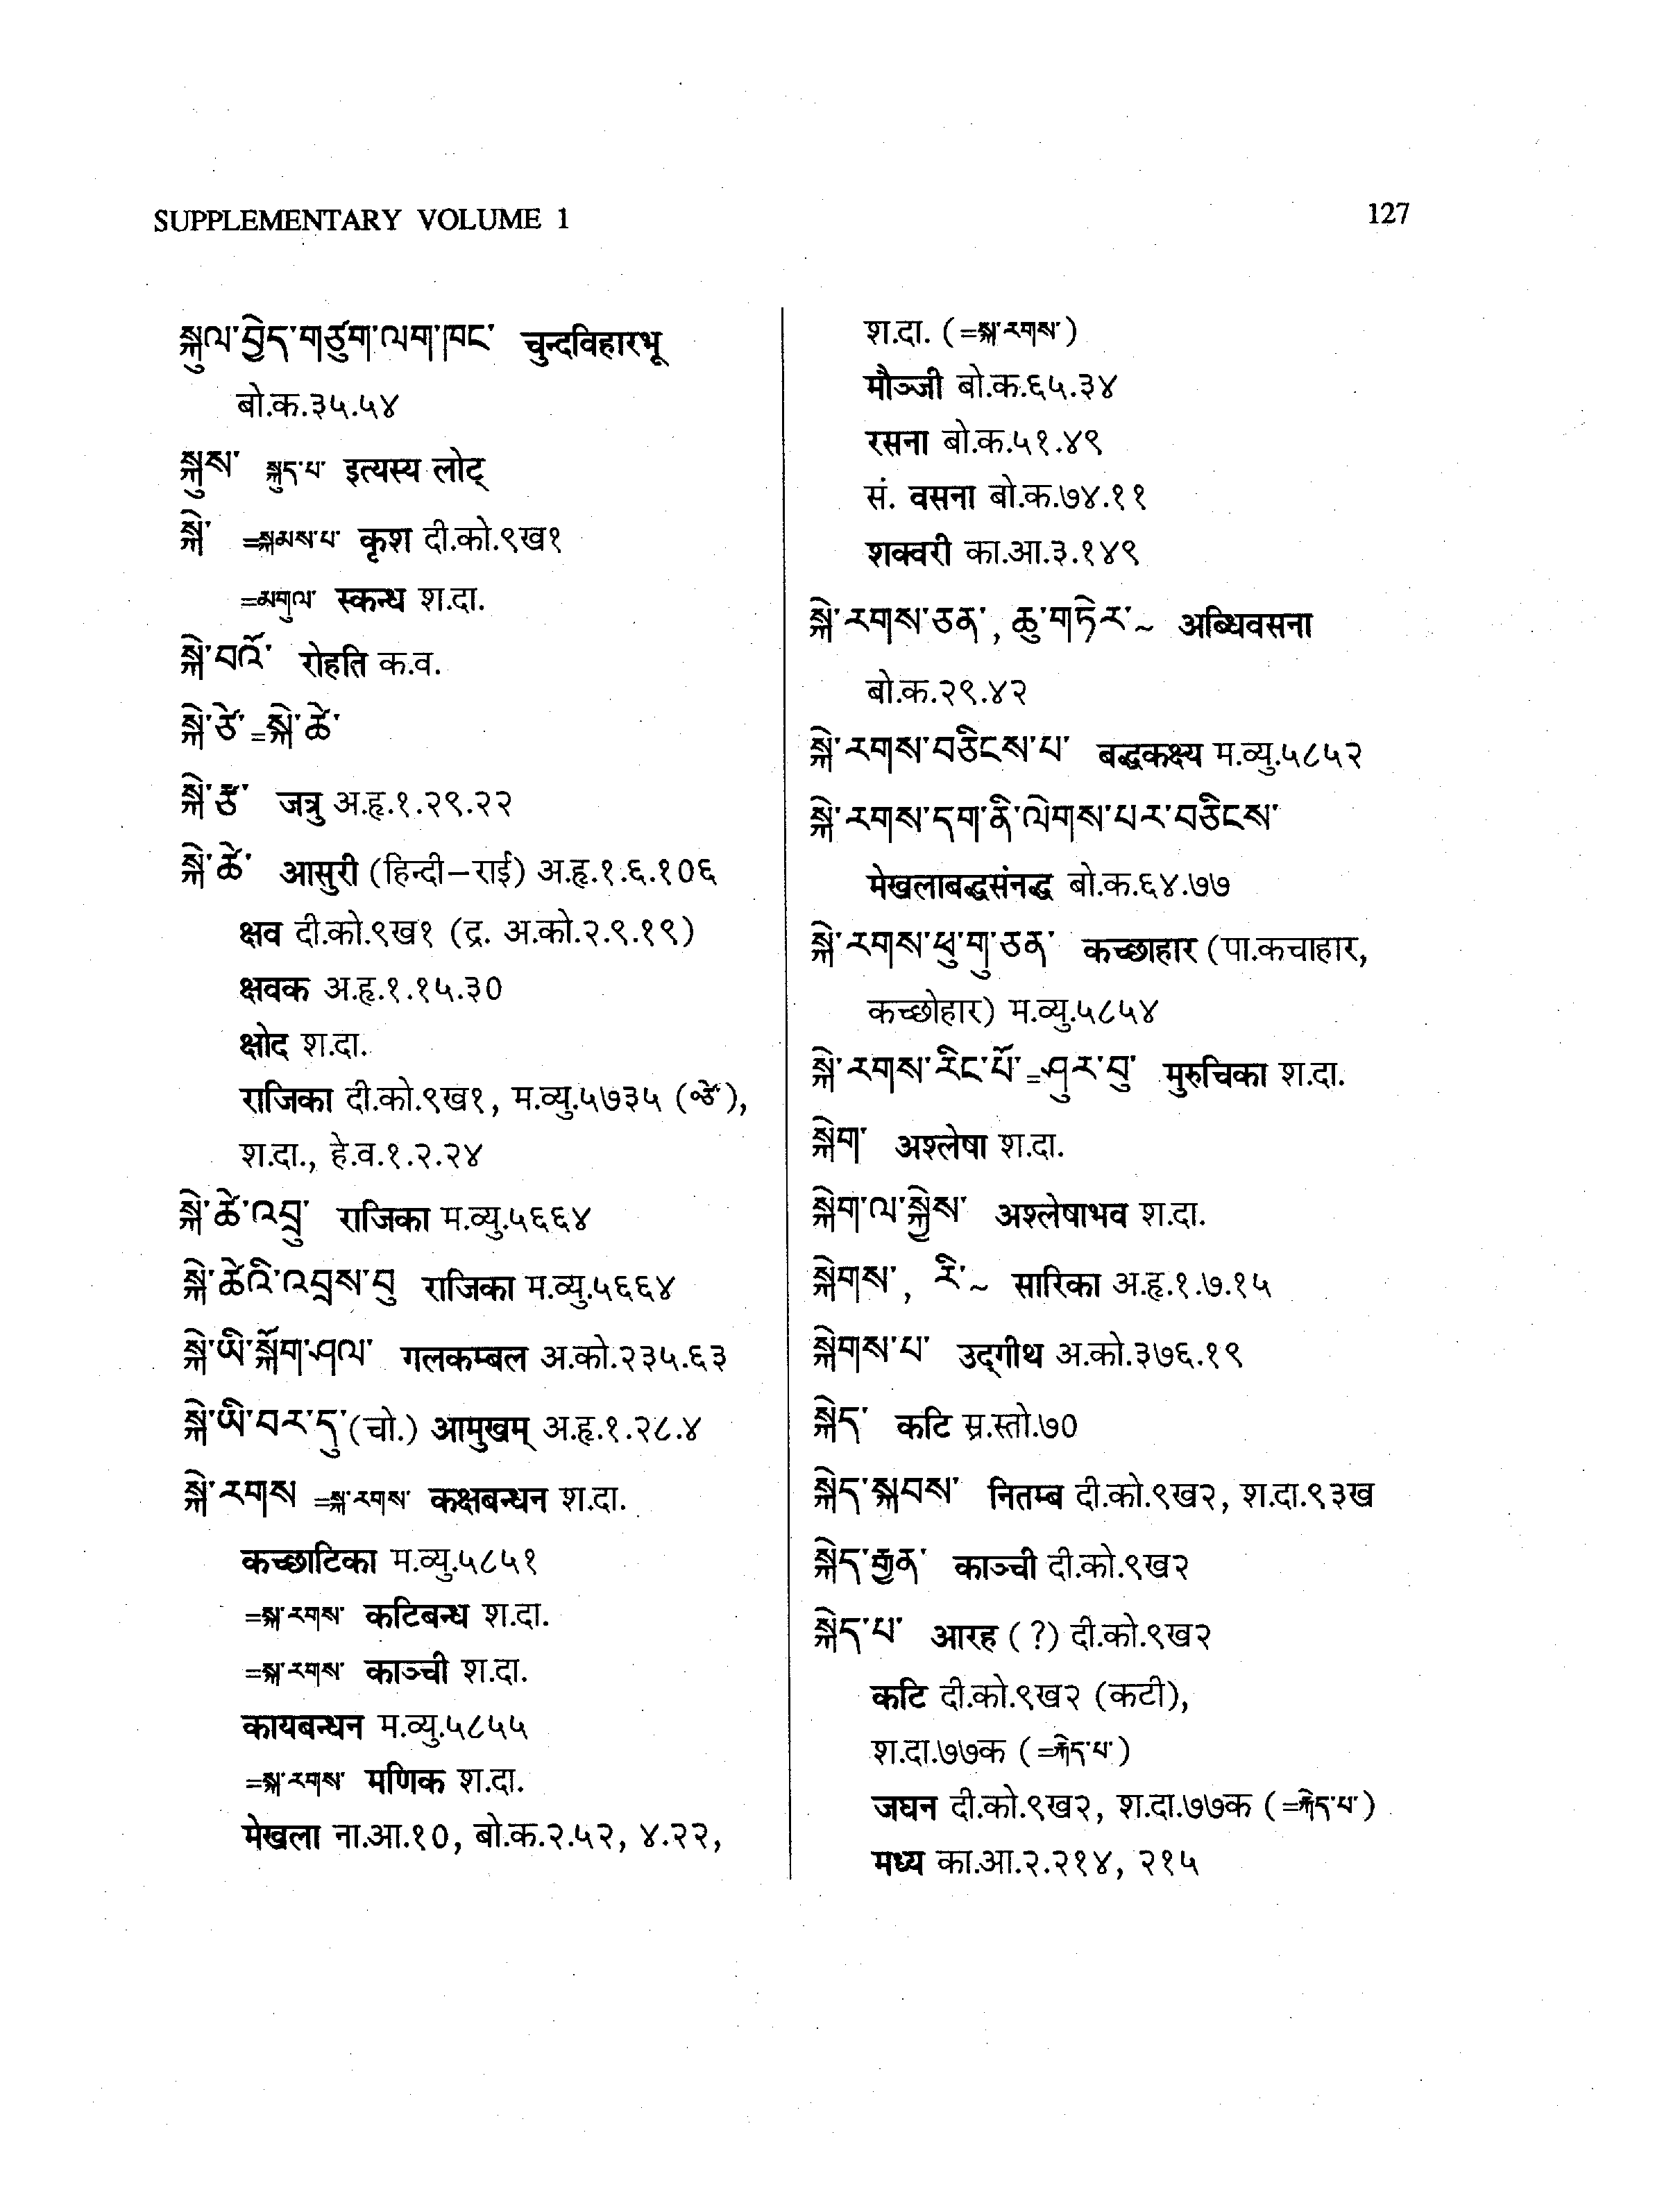 SUPPLEMENTARY VOLUME 1
127
སྐུལ་བྱེད་གཙུག་ལག་ཁང་ चुन्दविहारभू
बो.क.३५.५४
སྐུས་ སྐུད་པ་ इत्यस्य लोट्
སྐེ་ =སྐམས་པ་ कृश दी.को.९ख१
=མགུལ་ स्कन्ध श.दा.
སྐེ་བའོ་ रोहति क.व.
སྐེ་ཙེ་=སྐེ་ཚེ་
སྐེ་ཙོ་ जत्रु अ.हृ.१.२९.२२
སྐེ་ཚེ་ आसुरी (हिन्दी–राई) अ.हृ.१.६.१०६
क्षव दी.को.९ख१ (द्र. अ.को.२.९.१९)
क्षवक अ.हृ.१.१५.३०
क्षोद श.दा.
राजिका दी.को.९ख१, म.व्यु.५७३५ (ཙེ་),
श.दा., हे.व.१.२.२४
སྐེ་ཚེ་འབྲུ་ राजिका म.व्यु.५६६४
སྐེ་ཚེའི་འབྲས་བུ राजिका म.व्यु.५६६४
སྐེ་ཡི་སྐོག་ཤལ་ गलकम्बल अ.को.२३५.६३
སྐེ་ཡི་བར་དུ་(चो.) आमुखम् अ.हृ.१.२८.४
སྐེ་རགས =སྐ་རགས་ कक्षबन्धन श.दा.
कच्छाटिका म.व्यु.५८५१
=སྐ་རགས་ कटिबन्ध श.दा.
=སྐ་རགས་ काञ्ची श.दा.
कायबन्धन म.व्यु.५८५५
=སྐ་རགས་ मणिक श.दा.
मेखला ना.आ.१०, बो.क.२.५२, ४.२२,
श.दा. (=སྐ་རགས་)
मौञ्जी बो.क.६५.३४
रसना बो.क.५१.४९
सं. वसना बो.क.७४.११
शक्वरी का.आ.३.१४९
སྐེ་རགས་ཅན་, ཆུ་གཏེར་~ अब्धिवसना
बो.क.२९.४२
སྐེ་རགས་བཅིངས་པ་ बद्धकक्ष्य म.व्यु.५८५२
སྐེ་རགས་དག་ནི་ལེགས་པར་བཅིངས་
मेखलाबद्धसंनद्ध बो.क.६४.७७
སྐེ་རགས་ཕུ་གུ་ཅན་ कच्छाहार (पा.कचाहार,
कच्छोहार) म.व्यु.५८५४
སྐེ་རགས་རིང་པོ་=ཤུར་བུ་ मुरुचिका श.दा.
སྐེག་ अश्लेषा श.दा.
སྐེག་ལ་སྐྱེས་ अश्लेषाभव श.दा.
སྐེགས་, རི་~ सारिका अ.हृ.१.७.१५
སྐེགས་པ་ उद्गीथ अ.को.३७६.१९
སྐེད་ कटि स्र.स्तो.७०
སྐེད་སྐབས་ नितम्ब दी.को.९ख२, श.दा.९३ख
སྐེད་རྒྱན་ काञ्ची दी.को.९ख२
སྐེད་པ་ आरह (?) दी.को.९ख२
कटि दी.को.९ख२ (कटी),
श.दा.७७क (=རྐེད་པ་)
जघन दी.को.९ख२, श.दा.७७क (=རྐེད་པ་)
मध्य का.आ.२.२१४, २१५